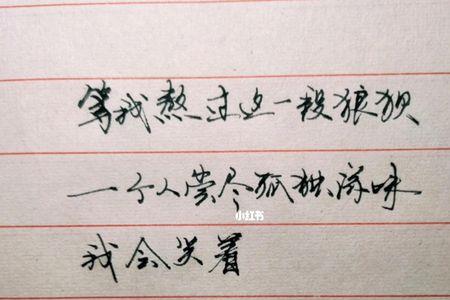 等我熬过这一段狼狈
一个人尝尽孤独滋味
小红书
我会笑着